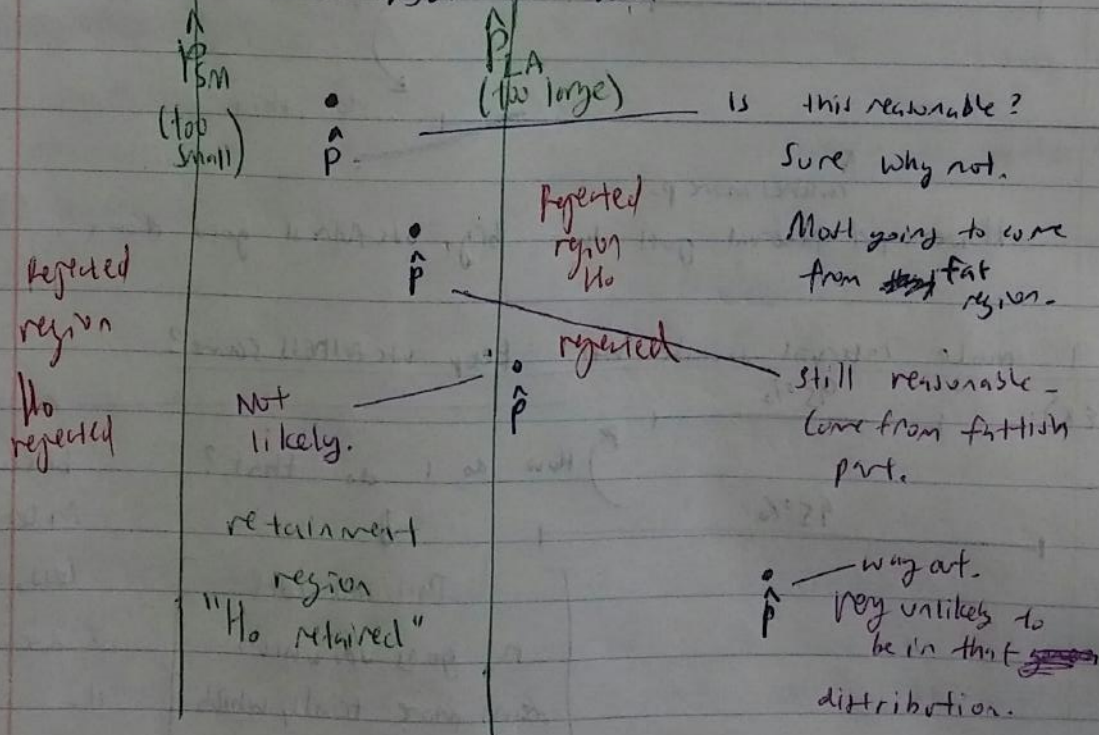 p̂SM
(too small)
p̂LA
(too large)
p̂
Is this reasonable?
Sure why not.
Most going to come
from fat
region.
p̂
Rejected
region
Ho
rejected
Rejected
region
Ho
rejected
p̂
Not
likely.
Still reasonable -
Come from fattish
part.
retainment
region
"Ho retained"
p̂
way out.
Very unlikely to
be in that
distribution.